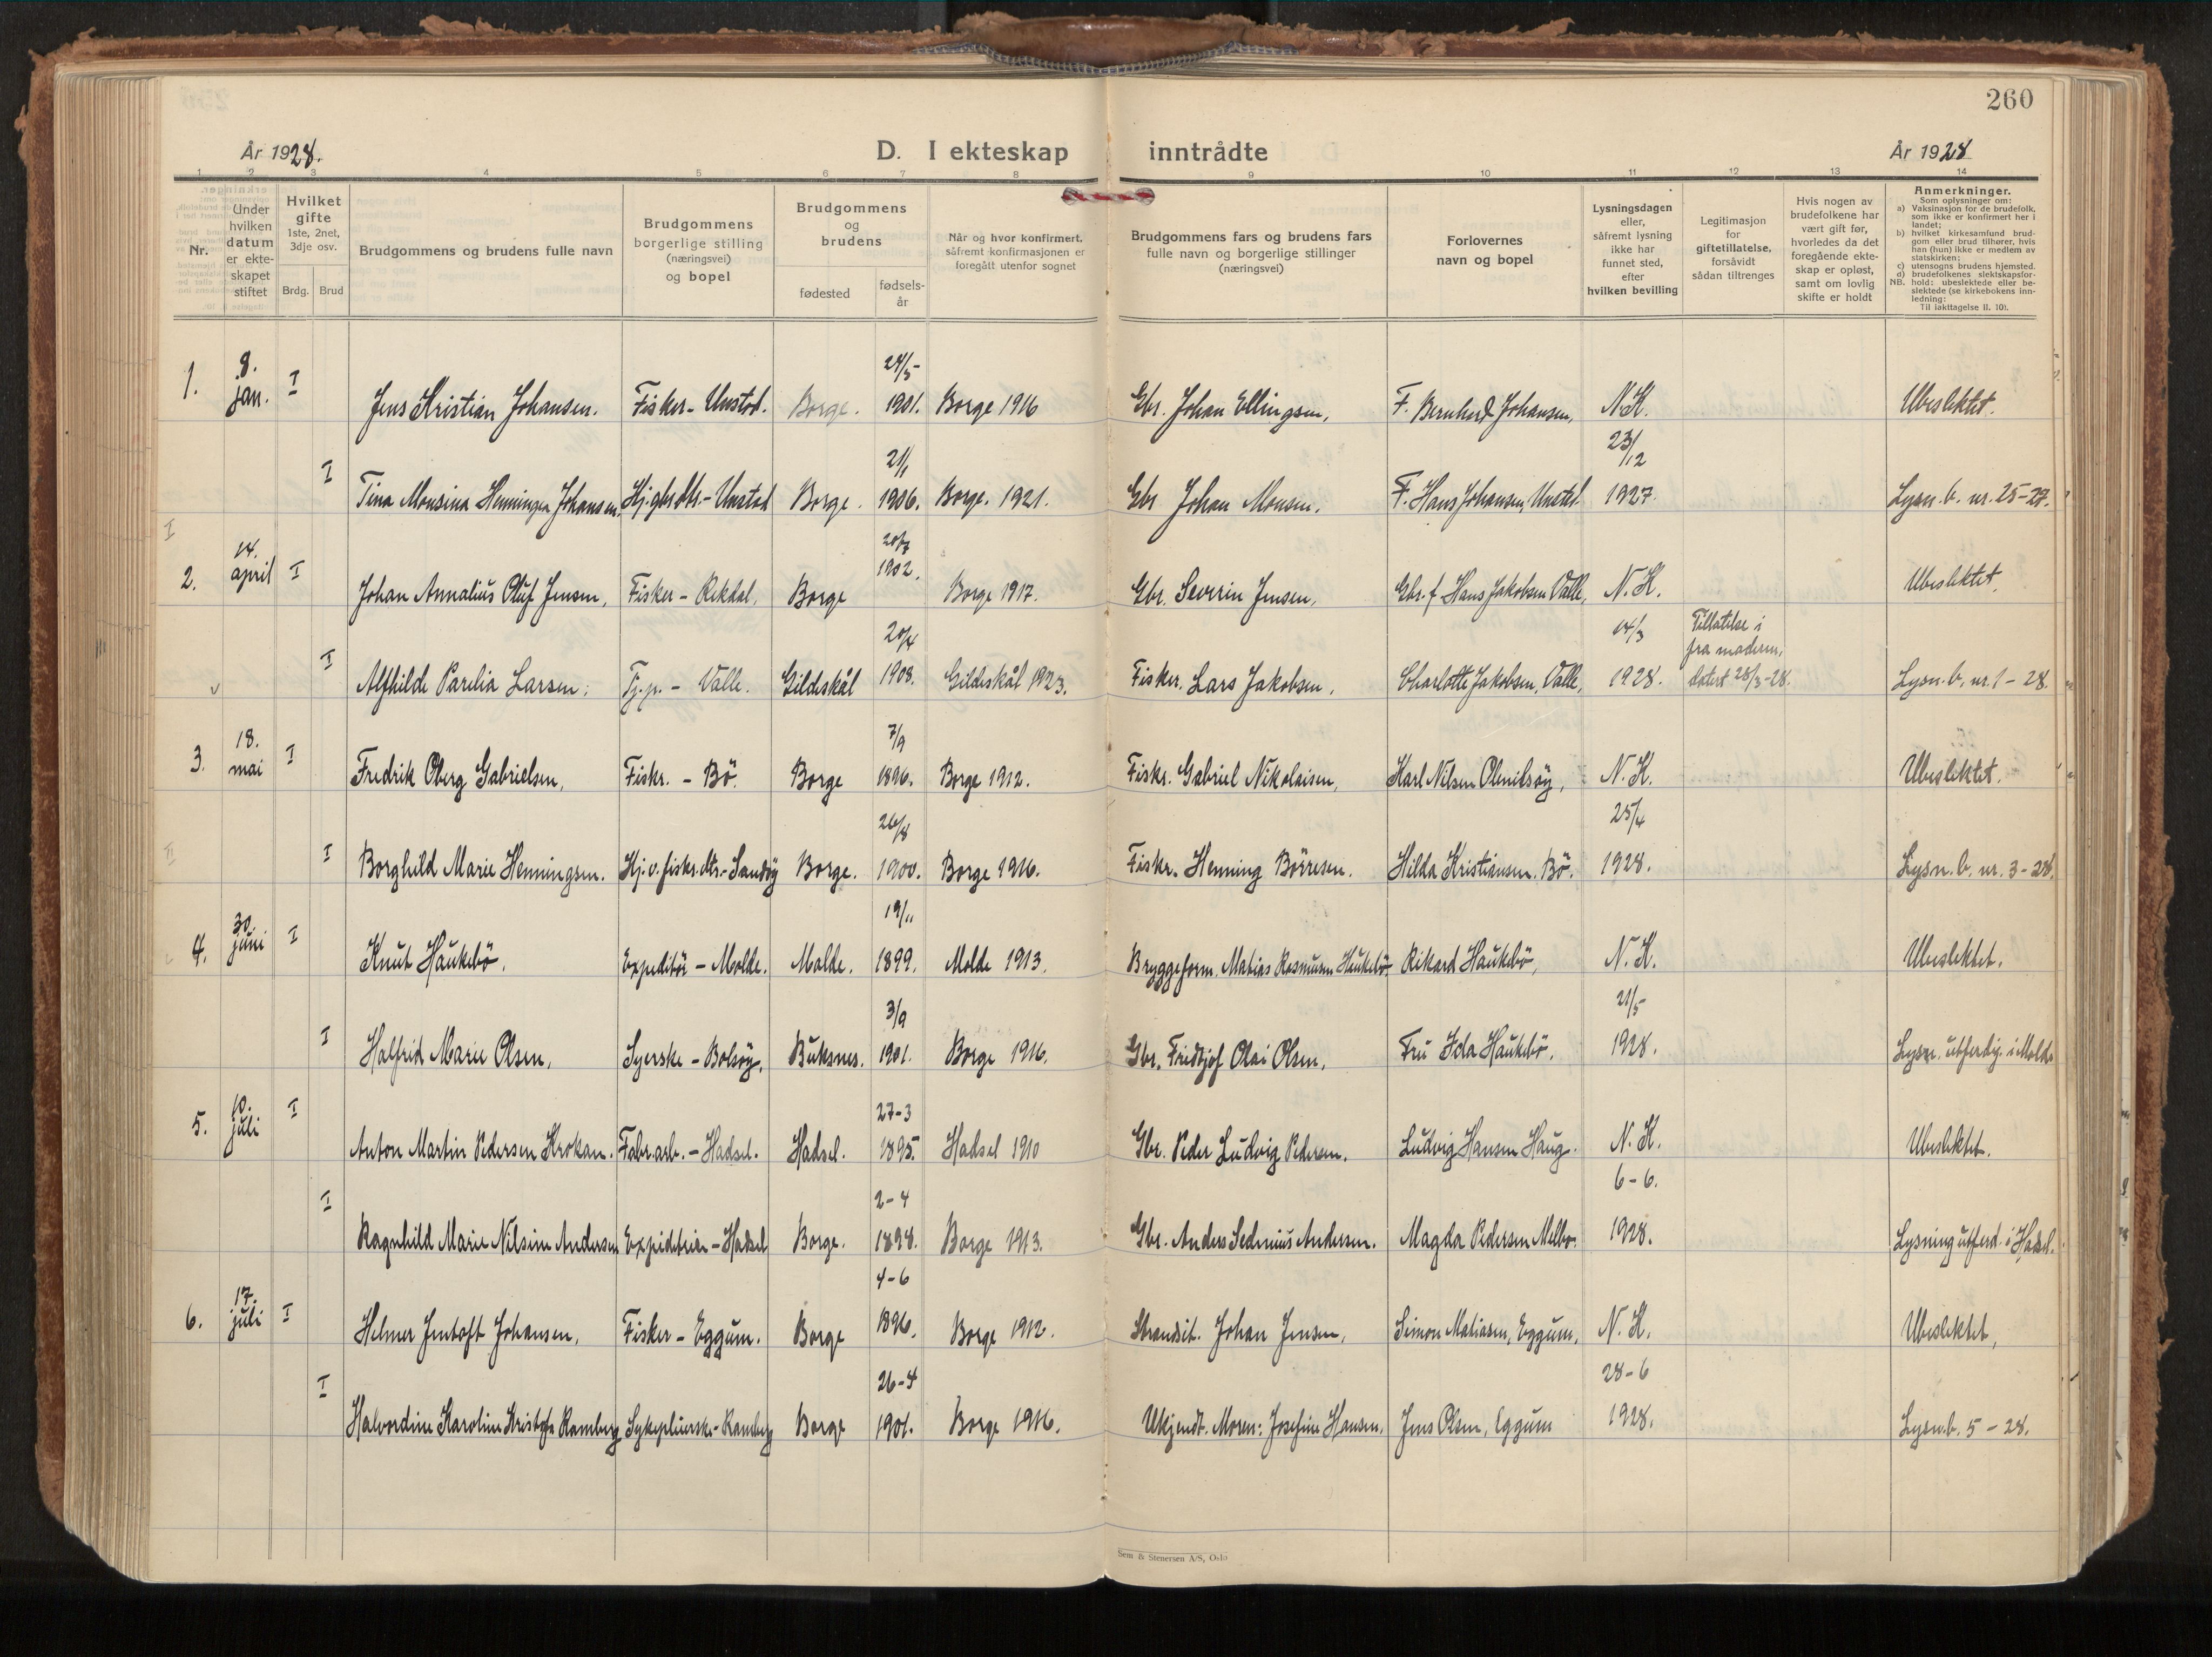 260
År 1928.
D. I ekteskap inntrådte
År 1928
1 2 3 4 5 6 7 8 9 10 11 12 13 14
Nr.
Under hvilken datum er ekteskapet stiftet
Hvilket gifte 1ste, 2net, 3dje osv.
Brdg. Brud
Brudgommens og brudens fulle navn
Brudgommens borgerlige stilling (næringsvei) og bopel
Brudgommens og brudens
fødested
fødsels-år
Når og hvor konfirmert, såfremt konfirmasjonen er foregått utenfor sognet
Brudgommens fars og brudens fars fulle navn og borgerlige stillinger (næringsvei)
Forlovernes navn og bopel
Lysningsdagen eller, såfremt lysning ikke har funnet sted, efter hvilken bevilling
Legitimasjon for giftetillatelse, forsåvidt sådan tiltrenges
Hvis nogen av brudefolkene har vært gift før, hvorledes da det foregående ekteskap er opløst, samt om lovlig skifte er holdt
Anmerkninger.
Som oplysninger om:
a) Vaksinasjon for de brudefolk, som ikke er konfirmert her i landet;
b) hvilket kirkesamfund brudgom eller brud tilhører, hvis han (hun) ikke er medlem av statskirken;
c) utensogns brudens hjemsted.
d) brudefolkenes slektskapsforhold: ubeslektede eller beslektede (se kirkebokens innledning:
NB.
Til iakttagelse II. 10).
1. 8. jan. I Jens Kristian Johansen. Fisker - Unstad. Borge. 24/5- 1901. Borge 1916 Gbr. Johan Ellingsen, F. Bernhard Johansen, N.K. Ubeslektet.
I Tina Monsina Henningea Johansen. Hj. gbr.dtr. - Unstad Borge. 21/1 1906. Borge. 1921. Gbr Johan Monsen. F. Hans Johansen, Unstad 23/12 1927. Lysn. b. nr. 25-27.
2. 14. april I Johan Annalius Oluf Jensen, Fisker - Rekdal, Borge 1902. Borge 1917. Gbr. Severin Jensen, Gbr. f Hans Jakobsen Valle, N.K. Ubeslektet.
I Alfhilde Parelia Larsen. Tj.p. - Valle. Gildeskål 20/4 1908. Gildeskål 1923. Fisker. Lars Jakobsen. Charlotte Jakobsen, Valle, 14/3 1928. Tillatelse i fra moderen, datert 28/3-28. Lysn. b. nr. 1 - 28.
3. 18. mai I Fredrik Oberg Gabrielsen, Fiskr. - Bö. Borge 7/9 1896. Borge 1912. Fiskr. Gabriel Nikolaisen, Karl Nilsen N.K. Ubeslektet.
I Borghild Marie Henningsen. Hj.v. fiskr.dtr. - Sandöy Borge. 26/8 1900. Borge 1916. Fiskr. Henning Börresen. Hilda Kristiansen. Bö. 25/4 1928. Lysn. b. nr. 3 - 28.
4. 30. juni I Knut Haukebö. Expeditör - Molde. Molde. 19/11 1899. Molde 1913. Bryggeform. Matias Rasmusen Haukebö. Rikard Haukebö, N.K. Ubeslektet.
I Halfrid Marie Olsen, Syerske - Bolsöy. Buksnes. 3/9 1901. Borge 1916. Gbr. Fridtjof Olai Olsen. Fru Ida Haukebö. 21/5- 1928. Lysn. utferdig. i Molde
5. 10. juli I Anton Martin Pedersen Krokan. Fabr.arb. - Hadsel. Hadsel. 27-3 1895. Hadsel 1910 Gbr. Peder Ludvig Pedersen. Ludvig Hansen Haug. N.K. Ubeslektet.
I Ragnhild Marie Nilsine Andersen Expiditrise - Hadsel Borge. 2-4 1894. Borge 1913. Gbr. Anders Sedenius Andersen. Magda Pedersen Melbo. 6-6. 1928. Lysning utferd. i Hadsel.
6. 17. juli I Helmer Jentoft Johansen, Fisker - Eggum. Borge 4-6 1896. Borge 1912. Strandsit. Johan Jensen, Simon Matiasen, Eggum, N.K. Ubeslektet,
I Halvordine Karoline Kristofa Ramberg Sykepleierske - Ramberg Borge 26-4 1901. Borge 1916. Ukjendt. Moren: Josefine Hansen, Jens Olsen, Eggum 28-6 1928. Lysn.b. 5 - 28.
Sem & Stenersen A/S, Oslo